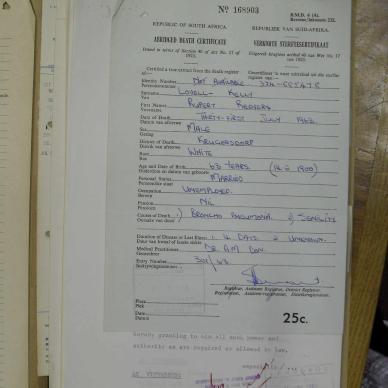 Nº 168903
B.M.D. 6 (A).
REPUBLIC OF SOUTH AFRICA.
REPUBLIEK VAN SUID-AFRIKA.
ABRIDGED DEATH CERTIFICATE
VERKORTE STERFTESERTIFIKAAT
Issued in terms of Section 40 of Act No. 17 of 1923.
Uitgereik kragtens artikel 40 van Wet No. 17 van 1923.
Certified a true extract from the death register of
Identity No. NOT AVAILABLE
Persoonsnommer
Surname LOVELL KELLY
Van
First Names RUPERT
Voorname
Date of Death THIRTY-FIRST JULY 1963
Datum van afsterwe
Sex MALE
Geslag
District of Death KRUGERSDORP
Distrik van afsterwe
Race WHITE
Ras
Age and Date of Birth 63 YEARS (1900)
Ouderdom en datum van geboorte
Personal Status MARRIED
Persoonlike staat
Occupation UNEMPLOYED.
Beroep
Pension NIL
Pensioen
Causes of Death 1) BRONCHO PNEUMONIA 2) SENILITY
Oorsake van dood
Duration of Disease or Last Illness 1. 14 DAYS 2 UNKNOWN.
Duur van kwaal of laaste siekte
Medical Practitioner DR A.M.
Geneesheer
Entry Number 301/63
Inskrywingsnommer
Registrar, Assistant Registrar, District Registrar.
Registrateur, Assistent-Registrateur, Distriksregistrateur.
Place
Plek
Date
Datum
25c.
hereby granting to him all such power and
authority as are required or allowed in law.